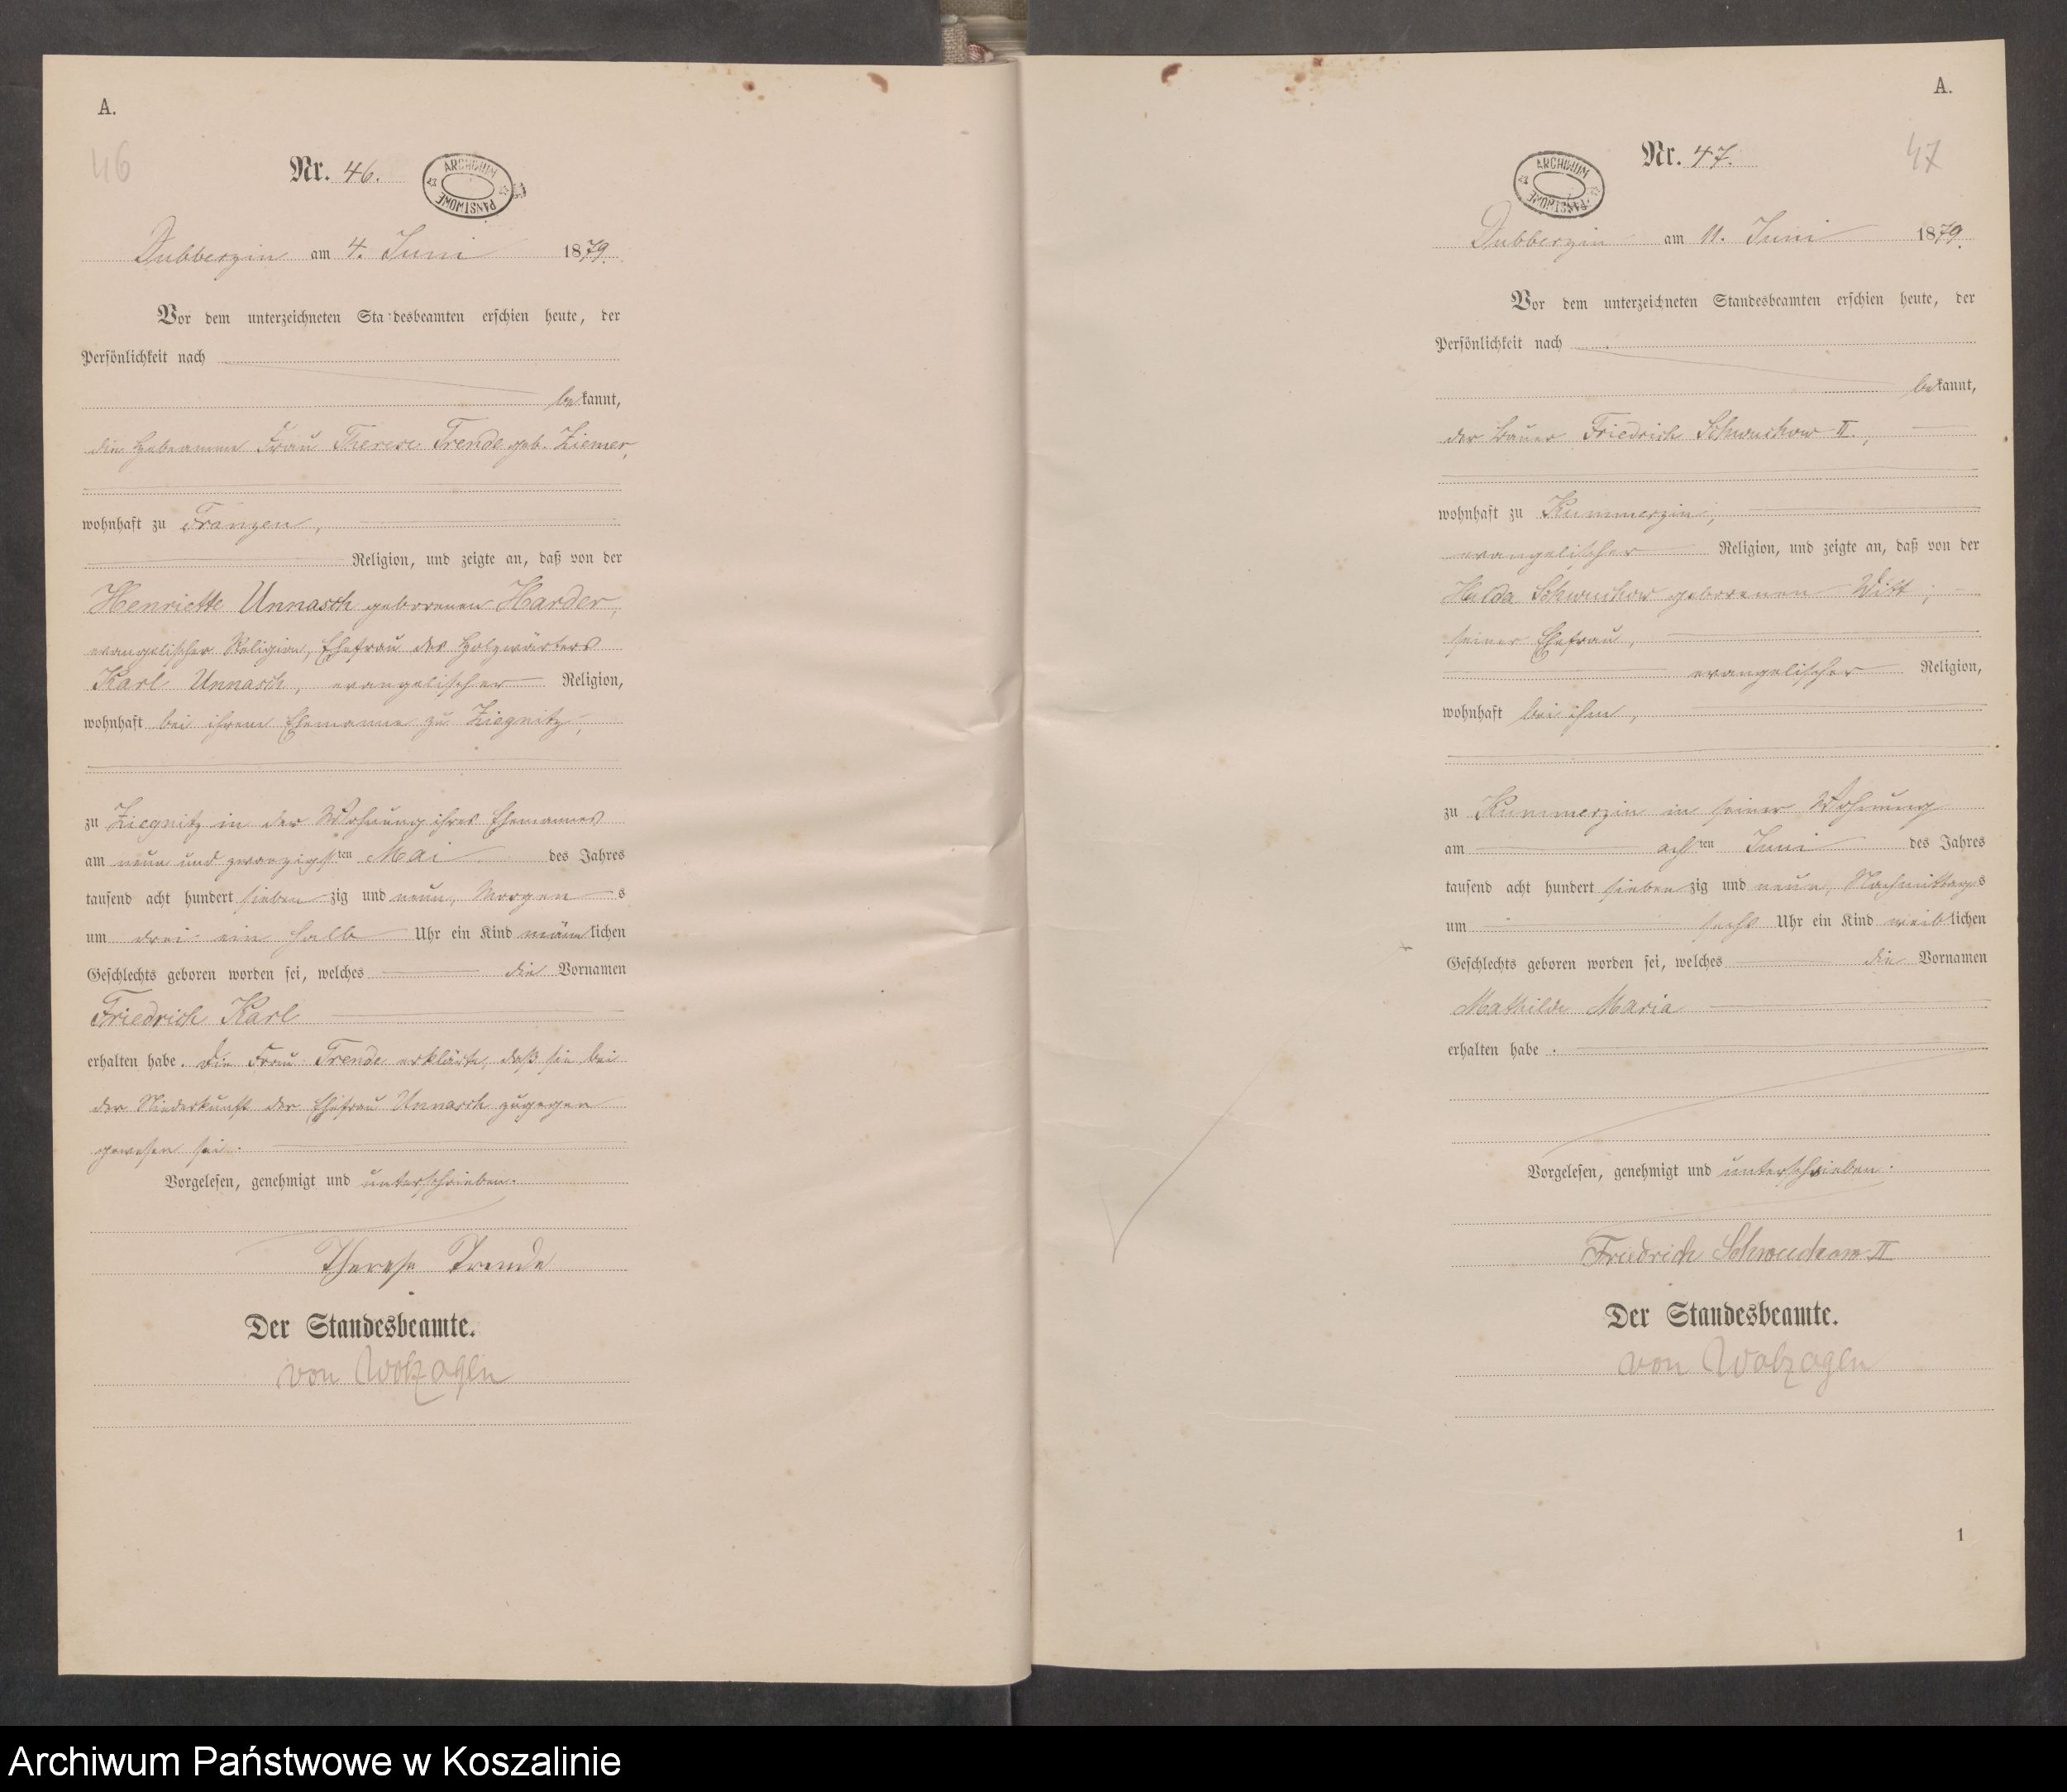 A.
46
Nr. 46.
ARCHIWUM PAŃSTWOWE
Dubberzin am 4. Juni 1879.
Vor dem unterzeichneten Standesbeamten erschien heute, der
Persönlichkeit nach
bekannt,
die Hebeamme Frau Therese Trende geb. Ziemer,
wohnhaft zu Franzen,
Religion, und zeigte an, daß von der
Henriette Unnasch geborenen Harder,
evangelischer Religion, Ehefrau des Holzwärters
Karl Unnasch, evangelischer Religion,
wohnhaft bei ihrem Ehemanne zu Ziegnitz,
zu Ziegnitz in der Wohnung ihres Ehemannes
am neun und zwanzigsten Mai des Jahres
tausend acht hundert siebenzig und neun, Morgens
um drei ein halb Uhr ein Kind männlichen
Geschlechts geboren worden sei, welches die Vornamen
Friedrich Karl
erhalten habe. Die Frau Trende erklärte, daß sie bei
der Niederkunft der Ehefrau Unnasch zugegen
gewesen sei.
Vorgelesen, genehmigt und unterschrieben.
Therese Trende
Der Standesbeamte.
von Wolzogen
A.
47
Nr. 47.
ARCHIWUM PAŃSTWOWE
Dubberzin am 11. Juni 1879.
Vor dem unterzeichneten Standesbeamten erschien heute, der
Persönlichkeit nach
bekannt,
der Bauer Friedrich Schwuchow II.,
wohnhaft zu Kummerzin,
evangelischer Religion, und zeigte an, daß von der
Hulda Schwuchow geborenen Witt,
seiner Ehefrau,
evangelischer Religion,
wohnhaft bei ihm,
zu Kummerzin in seiner Wohnung
am achten Juni des Jahres
tausend acht hundert siebenzig und neun, Nachmittags
um sechs Uhr ein Kind weiblichen
Geschlechts geboren worden sei, welches die Vornamen
Mathilde Maria
erhalten habe.
Vorgelesen, genehmigt und unterschrieben.
Friedrich Schwuchow II
Der Standesbeamte.
von Wolzogen
1
Archiwum Państwowe w Koszalinie